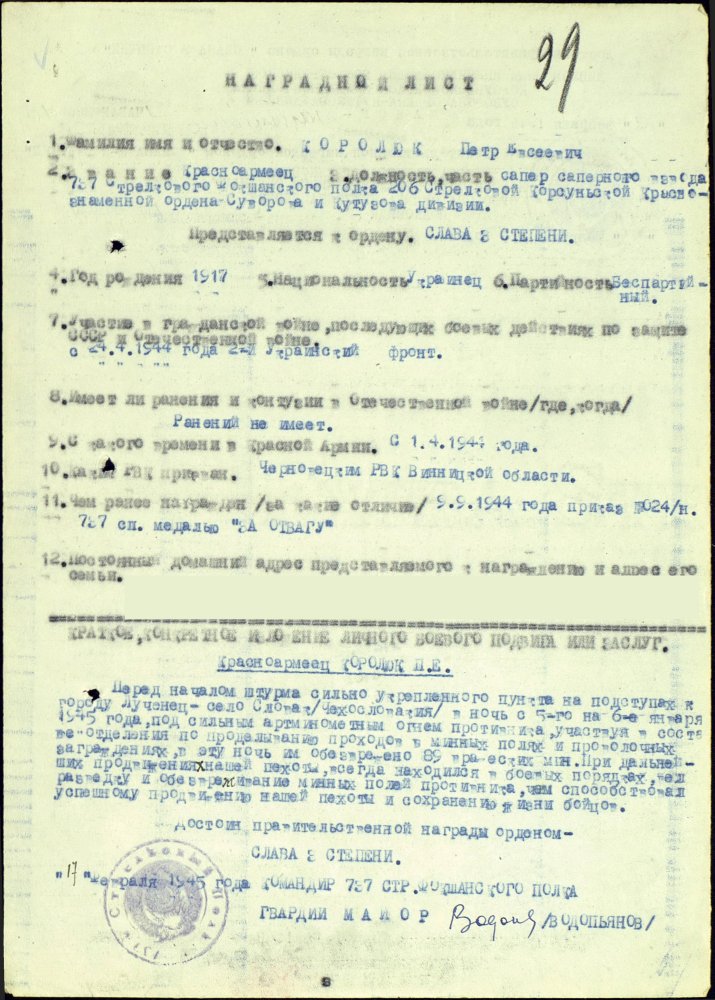 29
НАГРАДНОЙ ЛИСТ
1.Фамилия имя и отчество. КОРОЛЮК Петр Евсеевич
2.Звание Красноармеец 3.Должность,часть сапер саперного взвода
737 Стрелкового Фокшанского полка 206 Стрелковой Корсуньской Красно-
знаменной ордена Суворова и Кутузова дивизии.
Представляется к ордену. СЛАВА 3 СТЕПЕНИ.
4.Год рождения 1917 5.Национальность Украинец 6.Партийность Беспартий-
ный.
7.Участие в гражданской войне,последующих боевых действиях по защите
СССР и Отечественной войне.
с 24.4.1944 года 2-й Украинский фронт.
8.Имеет ли ранения и контузии в Отечественной войне/где,когда/
Ранений не имеет.
9.С какого времени в Красной Армии. С 1.4.1944 года.
10.Каким РВК призван. Черновецким РВК Винницкой области.
11.Чем ранее награжден /за какие отличие/ 9.9.1944 года приказ №024/н.
737 сп. медалью "ЗА ОТВАГУ"
12.Постоянный домашний адрес представляемого к награждению и адрес его
семьи.
КРАТКОЕ,КОНКРЕТНОЕ ИЗЛОЖЕНИЕ ЛИЧНОГО БОЕВОГО ПОДВИГА ИЛИ ЗАСЛУГ.
Красноармеец КОРОЛЮК П.Е.
Перед началом штурма сильно укрепленного пункта на подступах к
городу Лученец- село Словак/Чехословакия/ в ночь с 5-го на 6-е января
1945 года,под сильным артминометным огнем противника,участвуя в соста
ве отделения по проделыванию проходов в минных полях и проволочных
заграждениях,в эту ночь им обезврежено 89 вражеских мин.При дальней-
ших продвижениях нашей пехоты,всегда находился в боевых порядках,вел
разведку и обезвреживание минных полей противника,чем способствовал
успешному продвижению нашей пехоты и сохранению жизни бойцов.
Достоин правительственной награды орденом-
СЛАВА 3 СТЕПЕНИ.
"17" февраля 1945 года КОМАНДИР 737 СТР.ФОКШАНСКОГО ПОЛКА
ГВАРДИИ МАЙОР /ВОДОПЬЯНОВ/